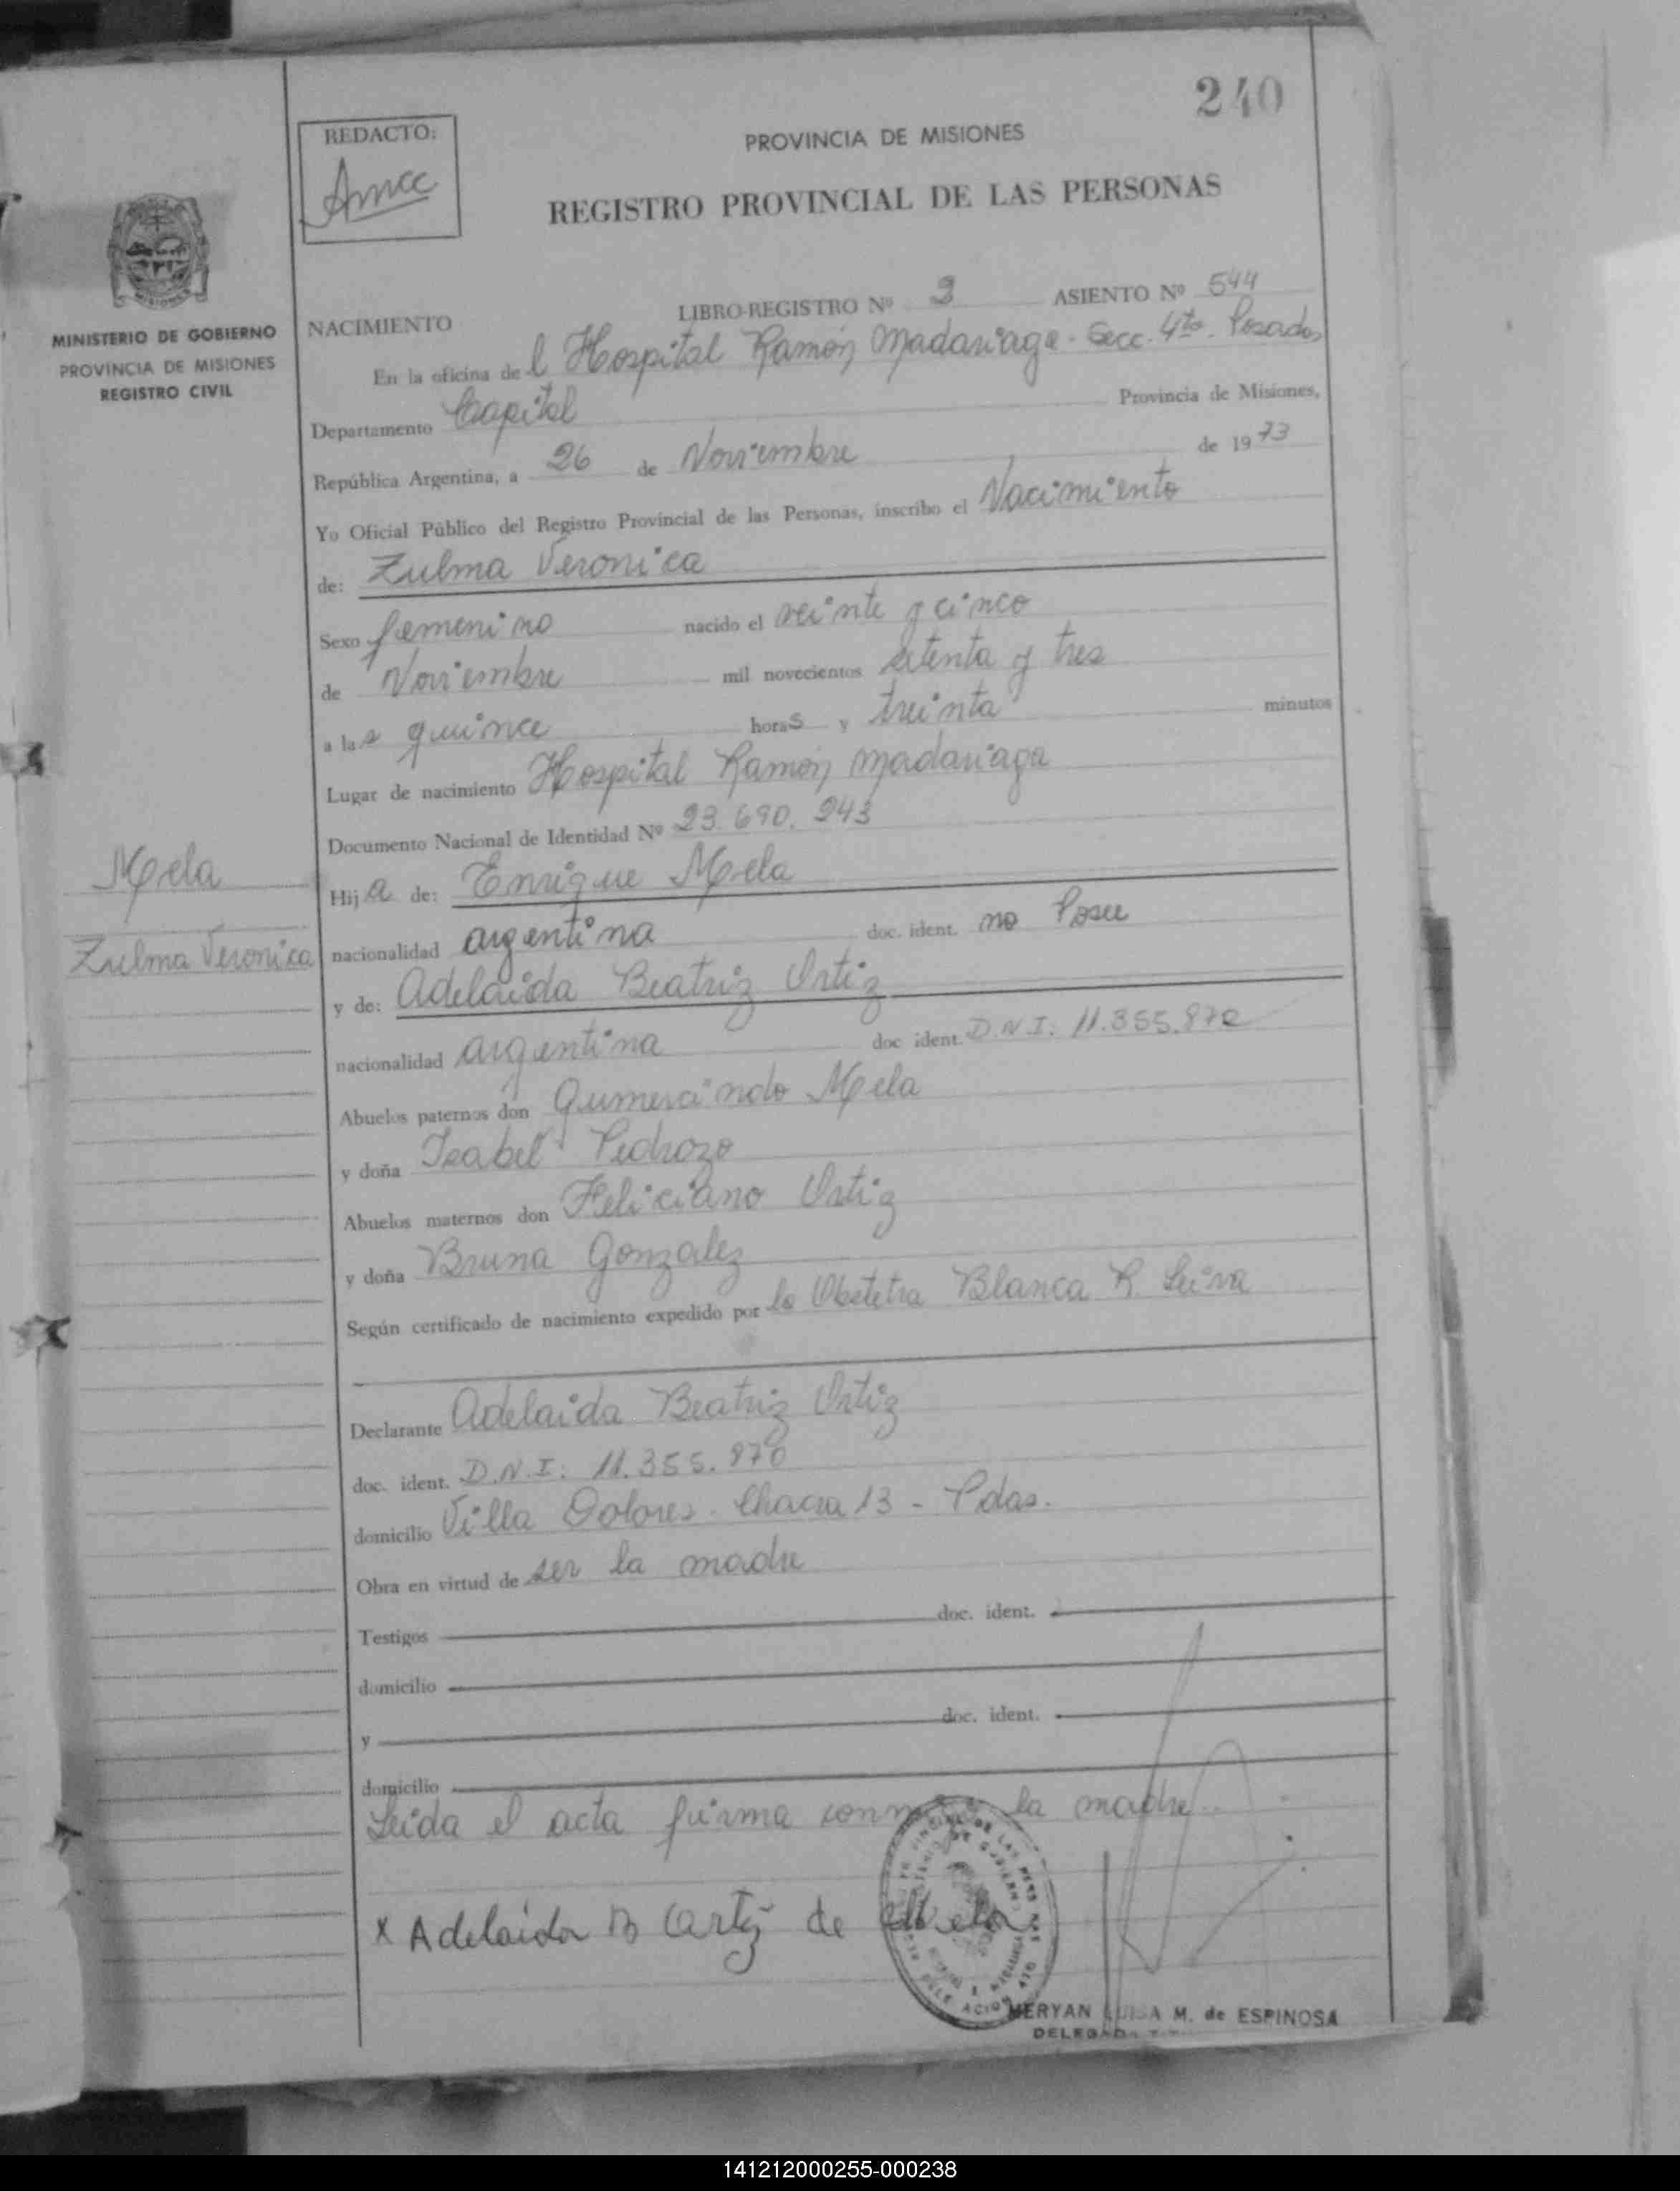 240
REDACTO:
PROVINCIA DE MISIONES
REGISTRO PROVINCIAL DE LAS PERSONAS
MINISTERIO DE GOBIERNO
PROVINCIA DE MISIONES
REGISTRO CIVIL
NACIMIENTO LIBRO-REGISTRO Nº 3 ASIENTO Nº 544
En la oficina del Hospital Ramón Madariaga - Secc. 4ta. Posadas
Departamento Capital Provincia de Misiones,
República Argentina, a 26 de Noviembre de 1973
Yo Oficial Público del Registro Provincial de las Personas, inscribo el Nacimiento
de: Zulma Veronica
Sexo femenino nacido el veinte y cinco
de Noviembre mil novecientos setenta y tres
a las quince horas y treinta minutos
Lugar de nacimiento Hospital Ramón Madariaga
Documento Nacional de Identidad Nº 23.690.243
Mela
Hija de: Enrique Mela
Zulma Veronica
nacionalidad argentina doc. ident. no Posee
y de: Adelaida Beatriz Ortiz
nacionalidad argentina doc ident. D.N.I: 11.355.870
Abuelos paternos don Gumercindo Mela
y doña Isabel Pedrozo
Abuelos maternos don Feliciano Ortiz
y doña Bruna Gonzalez
Según certificado de nacimiento expedido por la Obstetra Blanca R. Leiva
Declarante Adelaida Beatriz Ortiz
doc. ident. D.N.I: 11.355.870
domicilio Villa Dolores - Chacra 13 - Pdas.
Obra en virtud de ser la madre
Testigos doc. ident.
domicilio
y doc. ident.
domicilio
Leida el acta firma la madre
x Adelaida B Ortiz de Mela
MERYAN LUISA M. de ESPINOSA
141212000255-000238